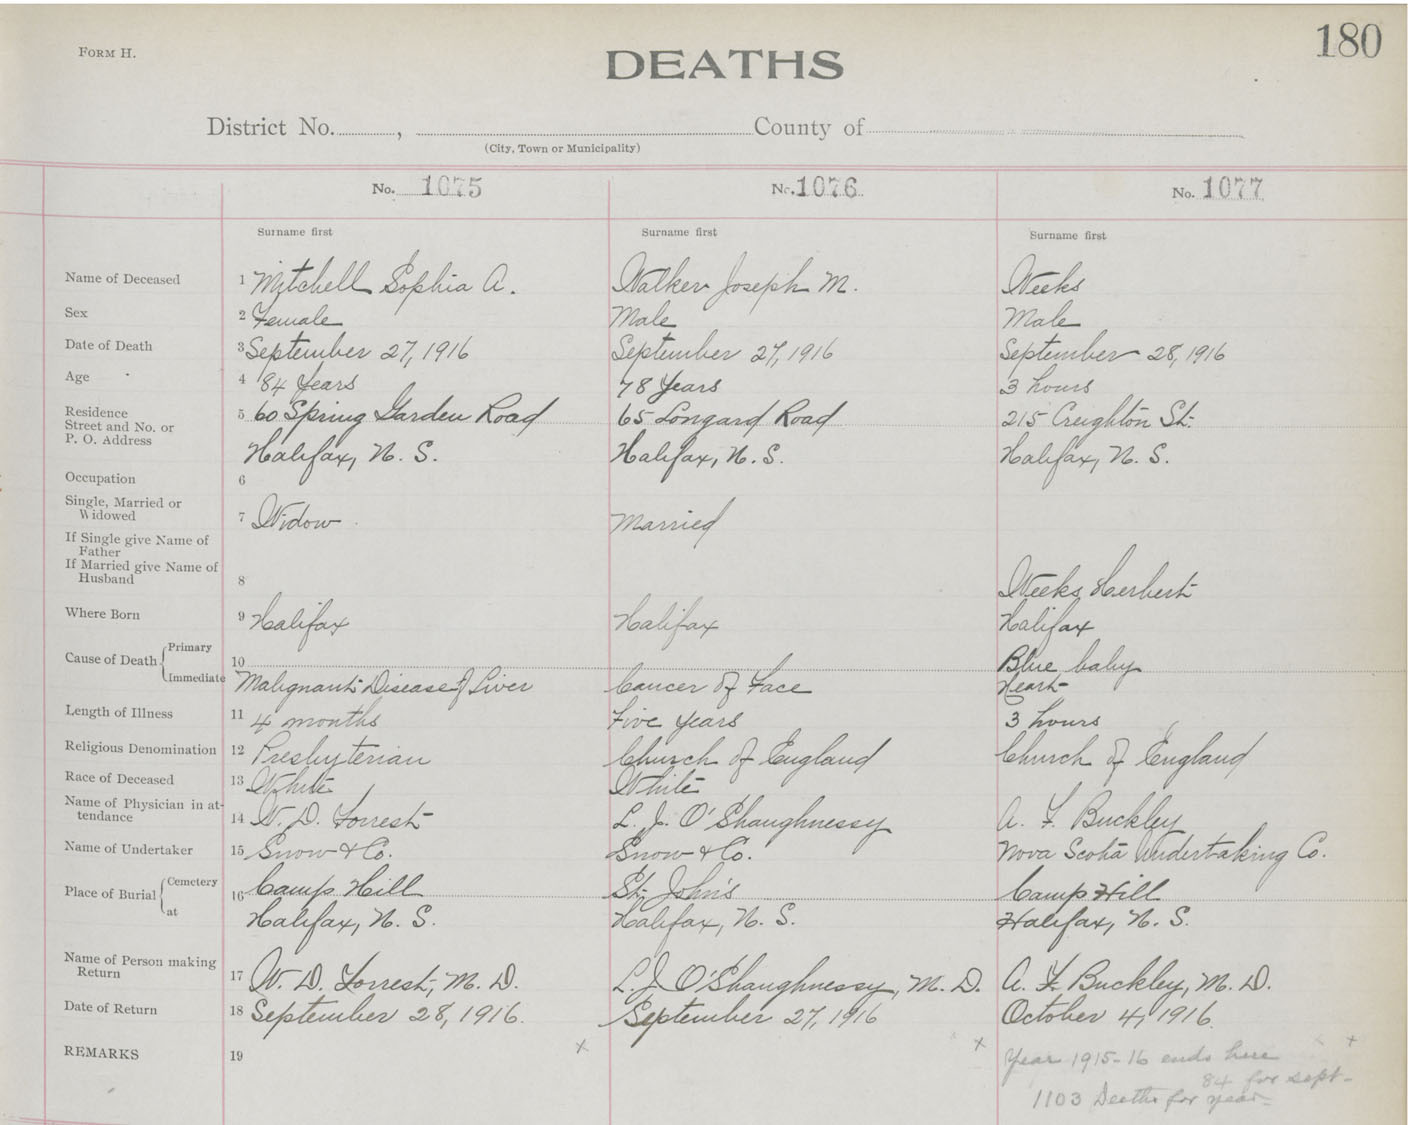 180
FORM H.
DEATHS
District No. , County of
(City, Town or Municipality)
No. 1075 No. 1076 No. 1077
Surname first Surname first Surname first
Name of Deceased 1 Mitchell Sophia A. Walker Joseph M. Weeks
Sex 2 Female Male Male
Date of Death 3 September 27, 1916 September 27, 1916 September 28, 1916
Age 4 84 Years 78 Years 3 hours
Residence
Street and No. or 5 60 Spring Garden Road 65 Longard Road 215 Creighton St.
P. O. Address Halifax, N. S. Halifax, N. S. Halifax, N. S.
Occupation 6
Single, Married or
Widowed 7 Widow Married
If Single give Name of
Father
If Married give Name of
Husband 8 Weeks Herbert
Where Born 9 Halifax Halifax Halifax
Cause of Death Primary 10 Blue baby
Immediate Malignant Disease of Liver Cancer of Face Heart
Length of Illness 11 4 months Five years 3 hours
Religious Denomination 12 Presbyterian Church of England Church of England
Race of Deceased 13 White White
Name of Physician in at-
tendance 14 W. D. Forrest L. J. O'Shaughnessy A. F. Buckley
Name of Undertaker 15 Snow & Co. Snow & Co. Nova Scotia Undertaking Co.
Place of Burial Cemetery 16 Camp Hill St. John's Camp Hill
at Halifax, N. S. Halifax, N. S. Halifax, N. S.
Name of Person making
Return 17 W. D. Forrest, M. D. L. J. O'Shaughnessy, M. D. A. F. Buckley, M. D.
Date of Return 18 September 28, 1916. September 27, 1916 October 4, 1916.
REMARKS 19 x x x
Year 1915-16 ends here
84 for sept-
1103 Deaths for year-